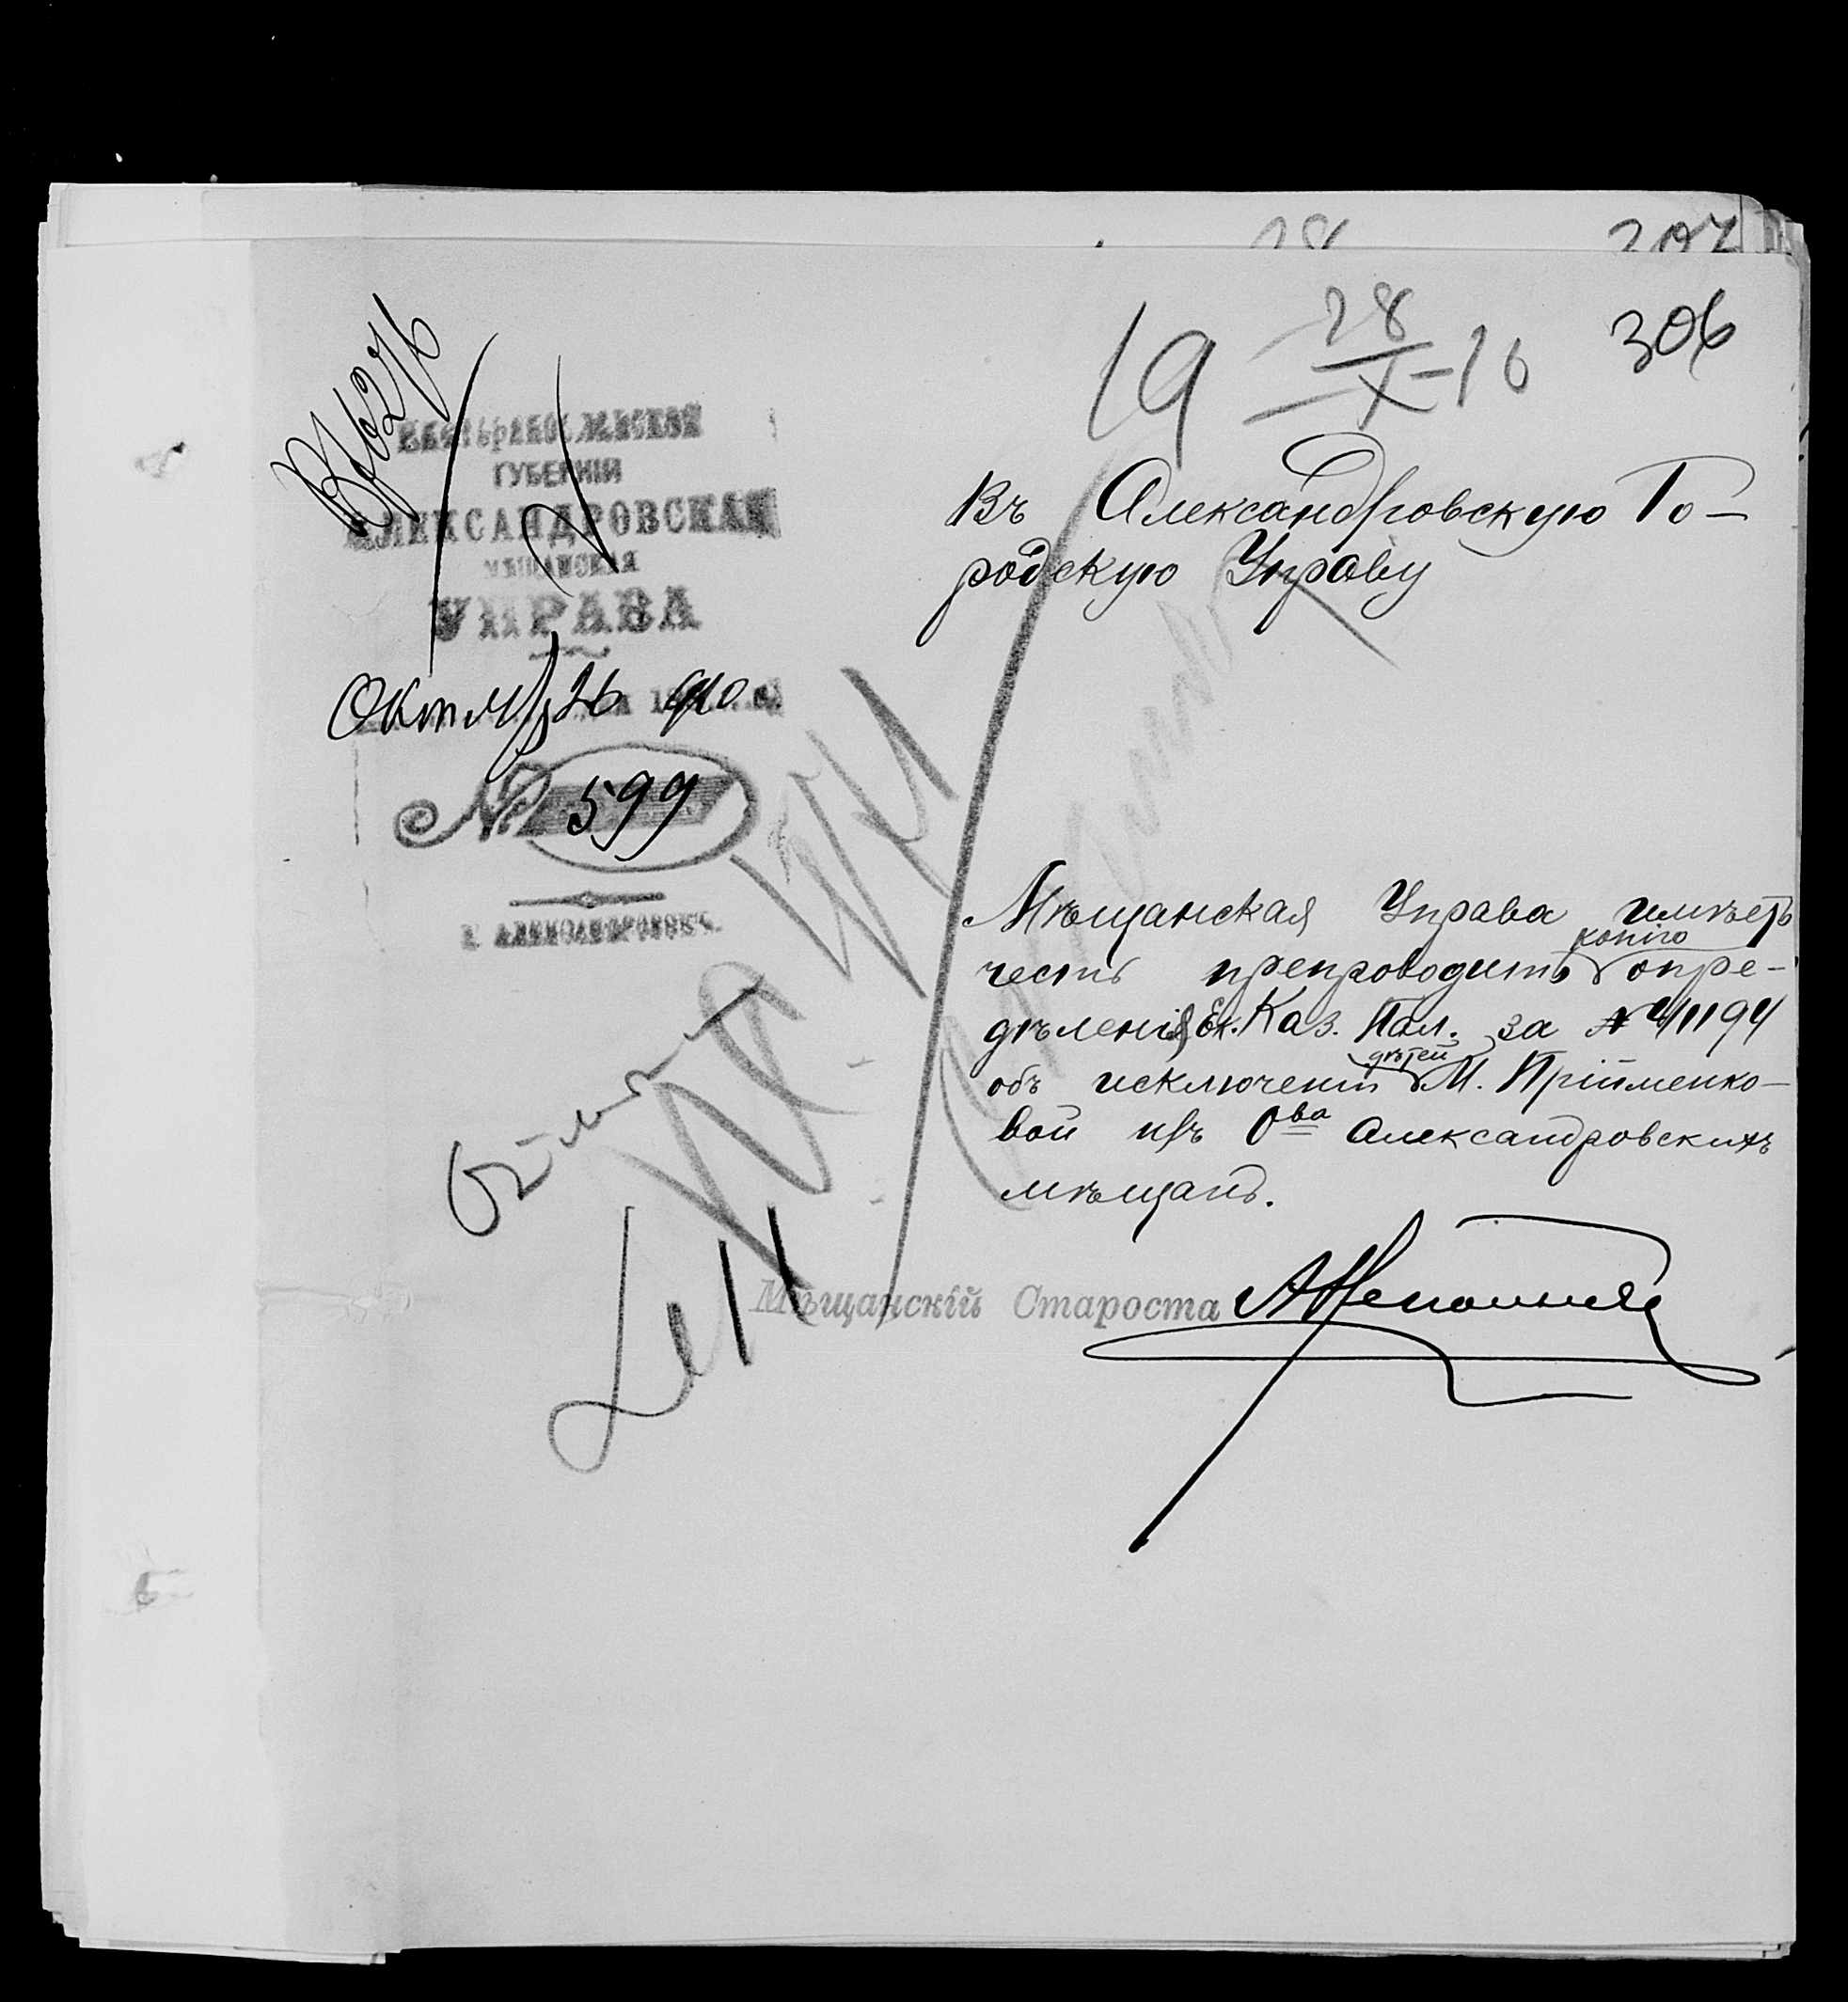 28
307
19 28/X-10
306
Екатеринославской
ГУБЕРНІИ
АЛЕКСАНДРОВСКАЯ
МѢЩАНСКАЯ
УПРАВА
Октября 26 910
№ 599
г. Александровскъ.
Въ Александровскую Го-
родскую Управу
Мѣщанская Управа имѣетъ
честь препроводить копію опре-
дѣленія Ек. Каз. Пал. за № 41194
объ исключеніи дѣтей М. Прійменко-
вой изъ О-ва Александровскихъ
мѣщанъ.
Мѣщанскій Староста